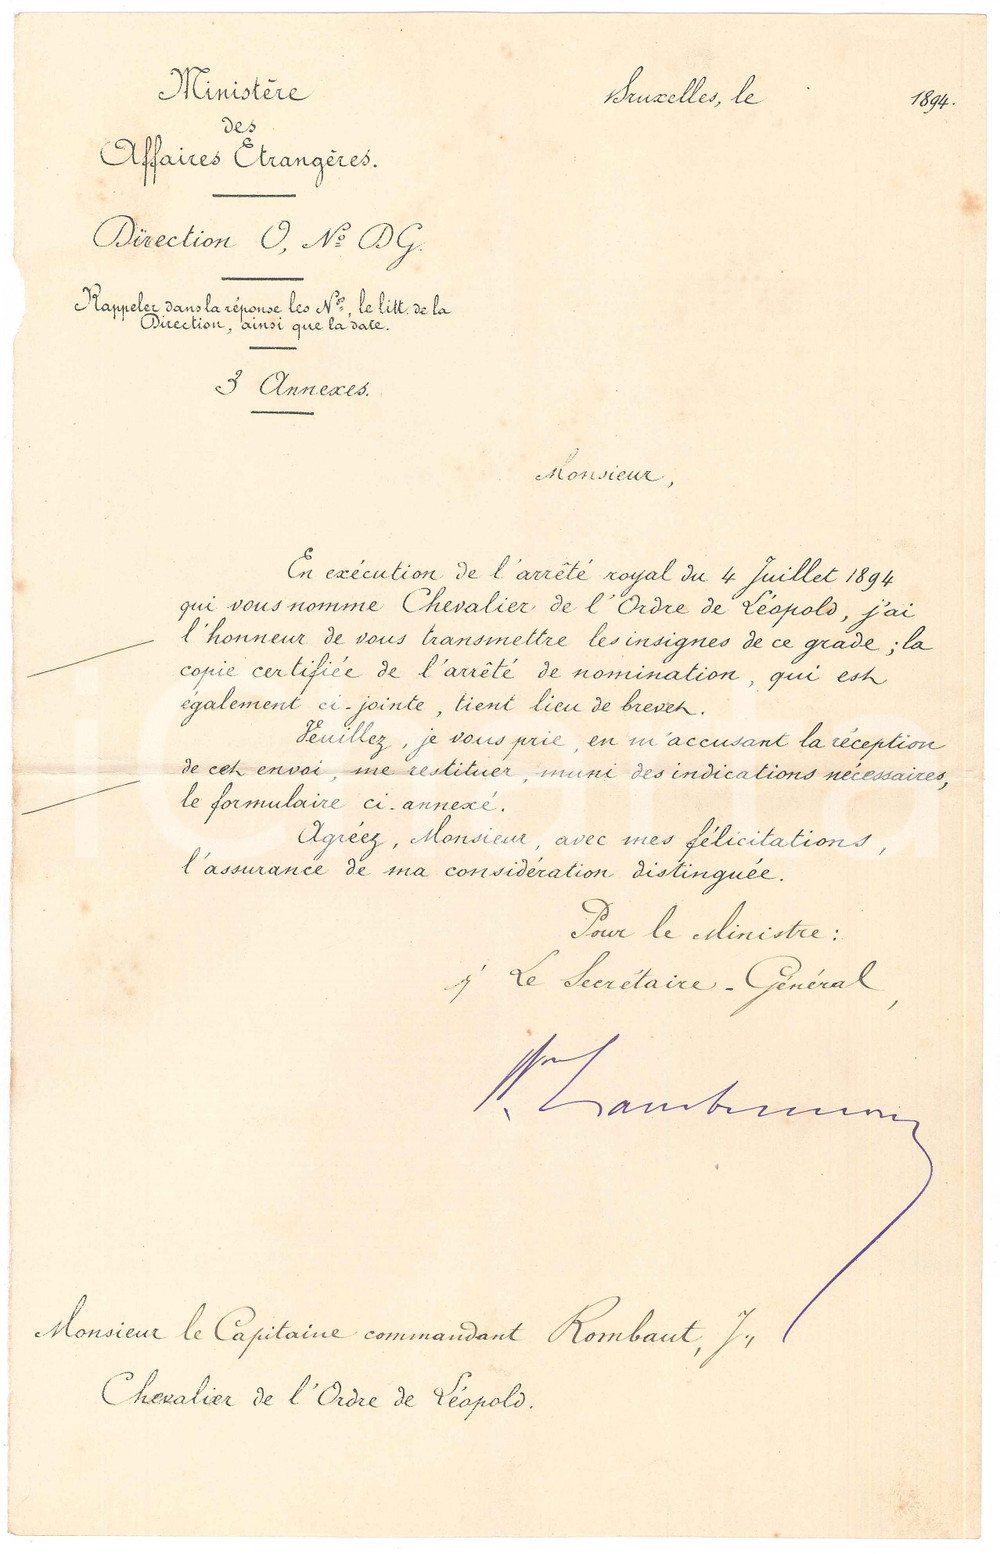 Ministère
des
Affaires Etrangères.
Direction O, Nº DG.
Rappeler dans la réponse les Nos, le litt. de la
Direction, ainsi que la date.
3 Annexes.
Bruxelles, le 1894.
Monsieur,
En exécution de l'arrêté royal du 4 Juillet 1894
qui vous nomme Chevalier de l'Ordre de Léopold, j'ai
l'honneur de vous transmettre les insignes de ce grade ; la
copie certifiée de l'arrêté de nomination, qui est
également ci-jointe, tient lieu de brevet.
Veuillez, je vous prie, en m'accusant la réception
de cet envoi, me restituer, muni des indications nécessaires,
le formulaire ci-annexé.
Agréez, Monsieur, avec mes félicitations,
l'assurance de ma considération distinguée.
Pour le Ministre :
Le Secrétaire-Général,
Bon Lambermont
Monsieur le Capitaine commandant Rombaut, J.,
Chevalier de l'Ordre de Léopold.